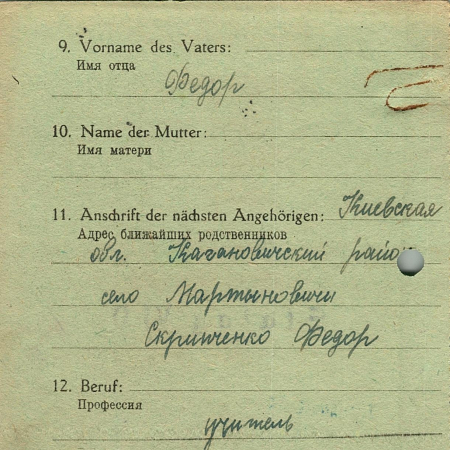 9. Vorname des Vaters:
Имя отца
Федор
10. Name der Mutter:
Имя матери
11. Anschrift der nächsten Angehörigen: Киевская
Адрес ближайших родственников
обл. Кагановичский район
село Мартыновичи
Скрипченко Федор
12. Beruf:
Профессия
учитель